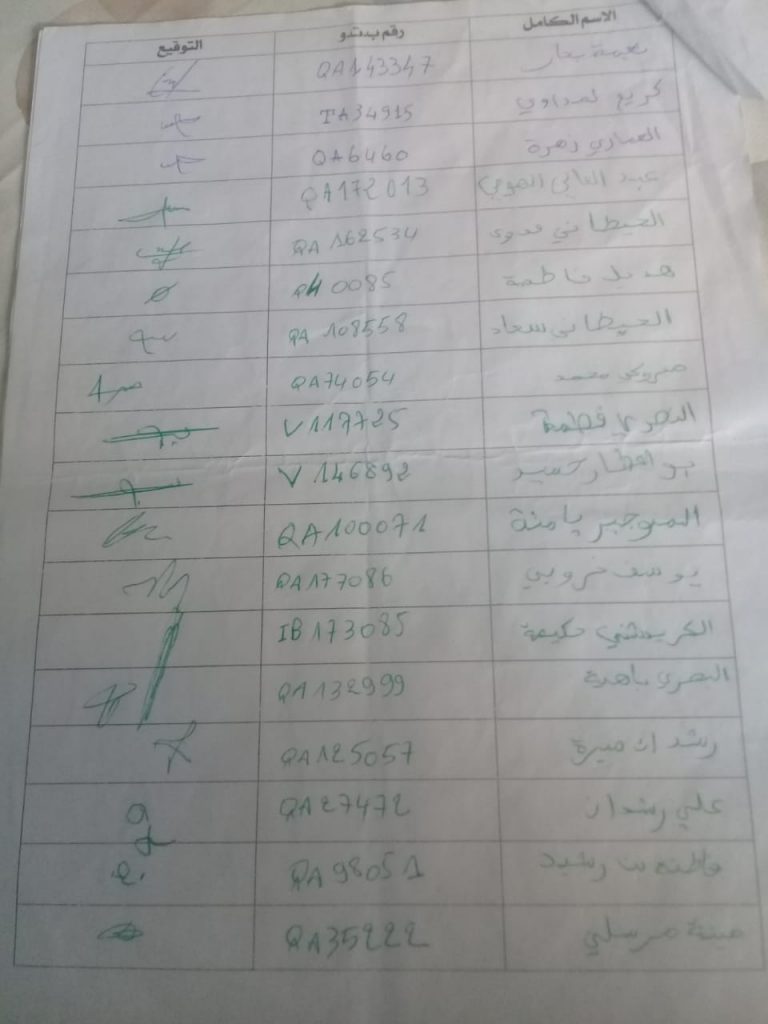 الاسم الكامل رقم ب.ت.و التوقيع
نعيمة بحار QA143347
كريم لصداوي TA34915
العماري زهرة QA6460
QA172013
العيطاني فدوى QA162534
فاطمة 0085
العيطاني سعاد QA108558
مبروكي محمد QA74054
البصري فطمة V117725
بو العطار حميد V146892
الموجبر يامنة QA100071
يوسف QA177086
حكيمة IB173085
البصري باهية QA132999
QA125057
علي رشدان QA27472
فاطمة بنت رشيد QA98051
مينة مرسلي QA35222